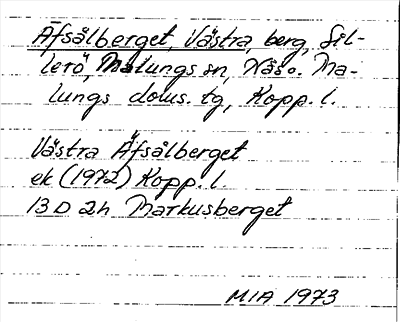 Äfsålberget, Västra, berg, Sil-
lerö, Malungs sn, Nås o. Ma-
lungs doms. tg, Kopp. l.
Västra Äfsålberget
ek (1972) Kopp. l.
13 D 2h Markusberget
MIA 1973